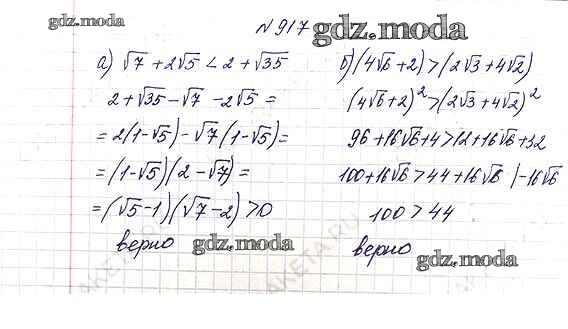 gdz.moda
№ 917 gdz.moda
а) √7 + 2√5 < 2 + √35
2 + √35 - √7 - 2√5 =
= 2(1-√5) - √7(1-√5) =
= (1-√5)(2-√7) =
= (√5-1)(√7-2) > 0
верно gdz.moda
б) (4√6 + 2) > (2√3 + 4√2)
(4√6+2)² > (2√3 + 4√2)²
96 + 16√6 + 4 > 12 + 16√6 + 32
100 + 16√6 > 44 + 16√6 | - 16√6
100 > 44
верно gdz.moda